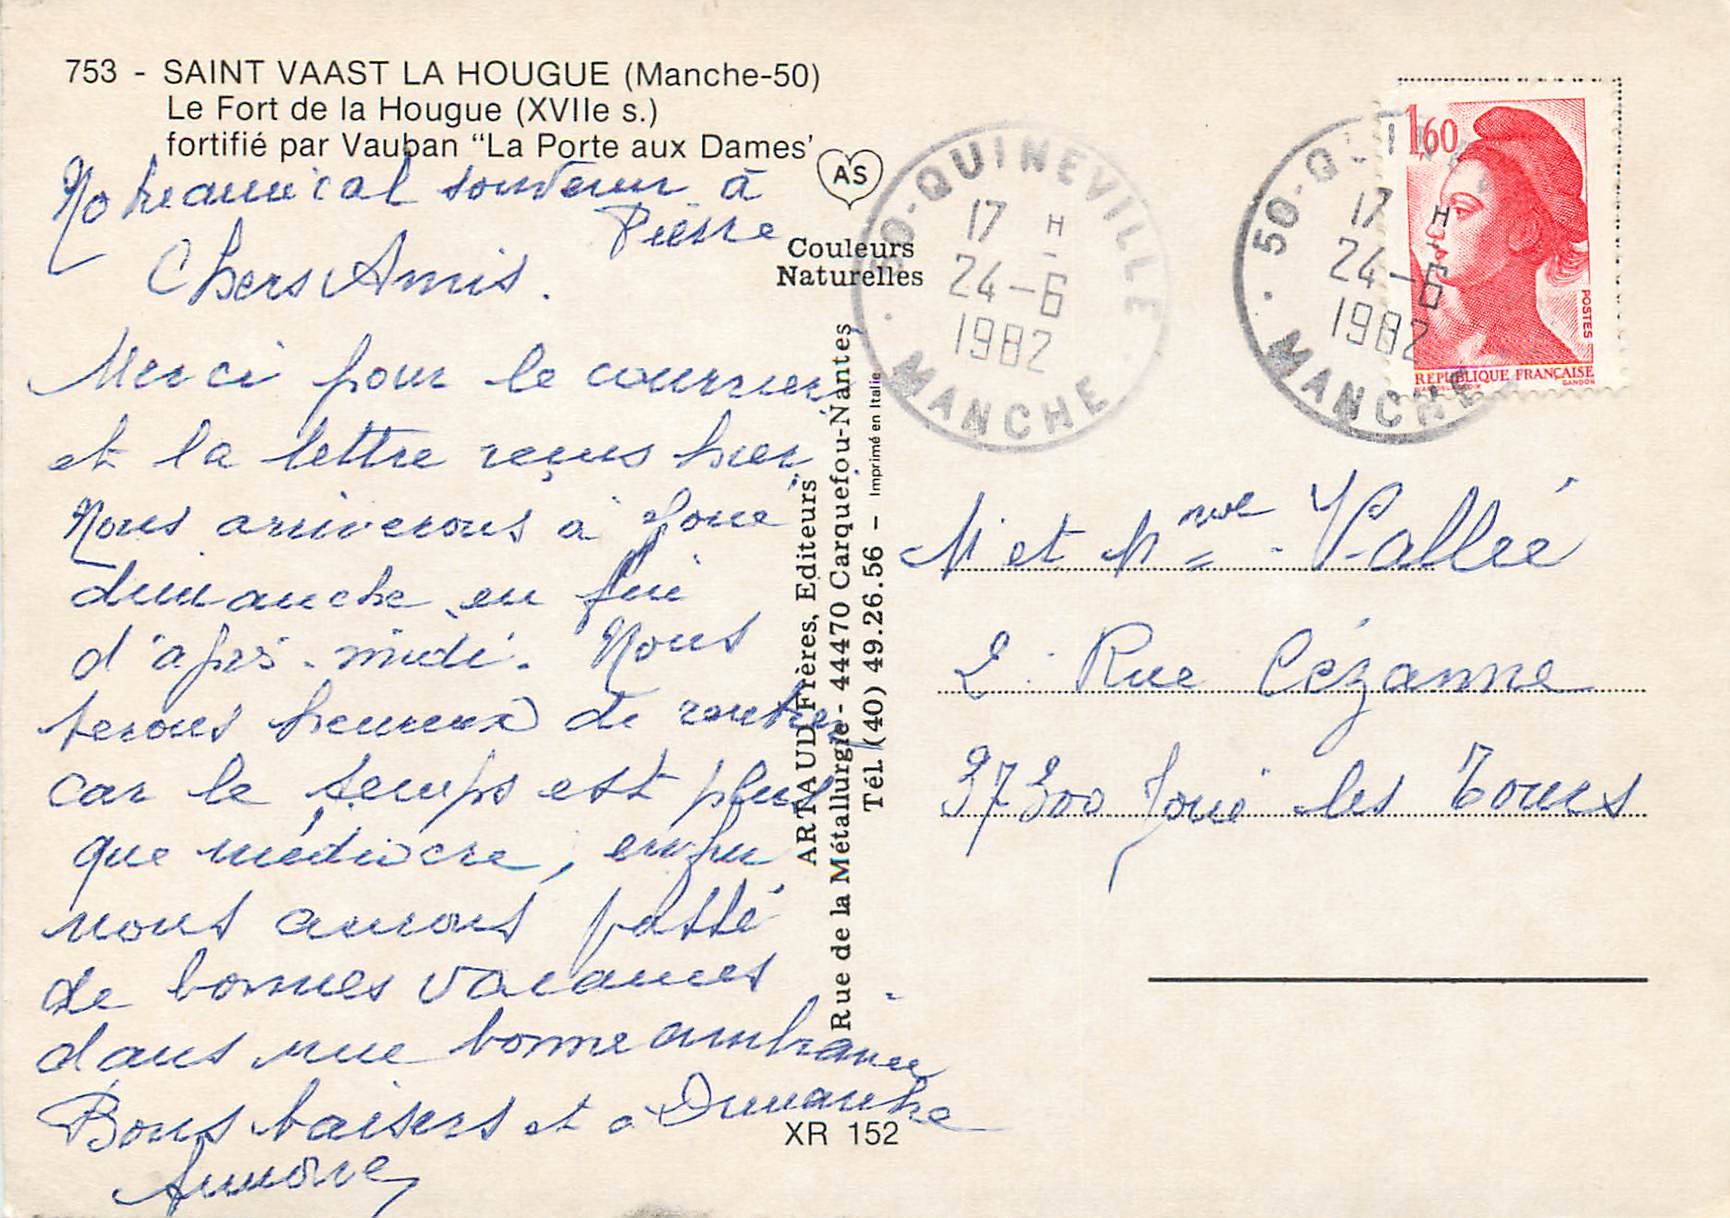 753 - SAINT VAAST LA HOUGUE (Manche-50)
Le Fort de la Hougue (XVIIe s.)
fortifié par Vauban "La Porte aux Dames'
Notre amical souvenir à
Pierre
Chers Amis.
Merci pour le courrier
et la lettre reçus hier
Nous arriverons à Joué
dimanche en fin
d'après-midi. Nous
serons heureux de rentrer
car le temps est plus
que médiocre, enfin
nous aurons passé
de bonnes vacances
dans une bonne ambiance
Bons baisers et à Dimanche
AS
Couleurs
Naturelles
ARTAUD Frères, Editeurs
Rue de la Métallurgie - 44470 Carquefou-Nantes
Tél. (40) 49.26.56 – Imprimé en Italie
XR 152
50-QUINEVILLE
17 H
24-6
1982
MANCHE
50-QUINEVILLE
17 H
24-6
1982
MANCHE
1,60
POSTES
REPUBLIQUE FRANÇAISE
GANDON
M et Mme Vallée
2 Rue Cézanne
37300 Joué les Tours